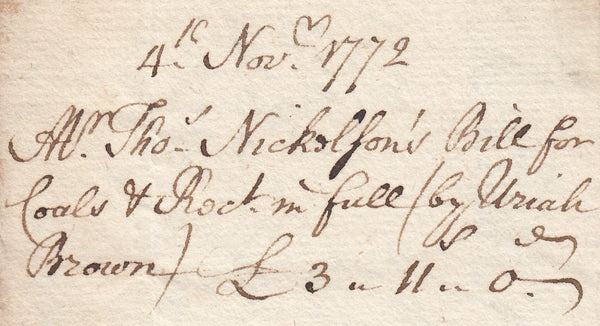 4th Novm 1772
Mr Thos Nickolson's Bill for
Coals & Rect in full (by Uriah
Brown) £ 3 " 11s " 0d